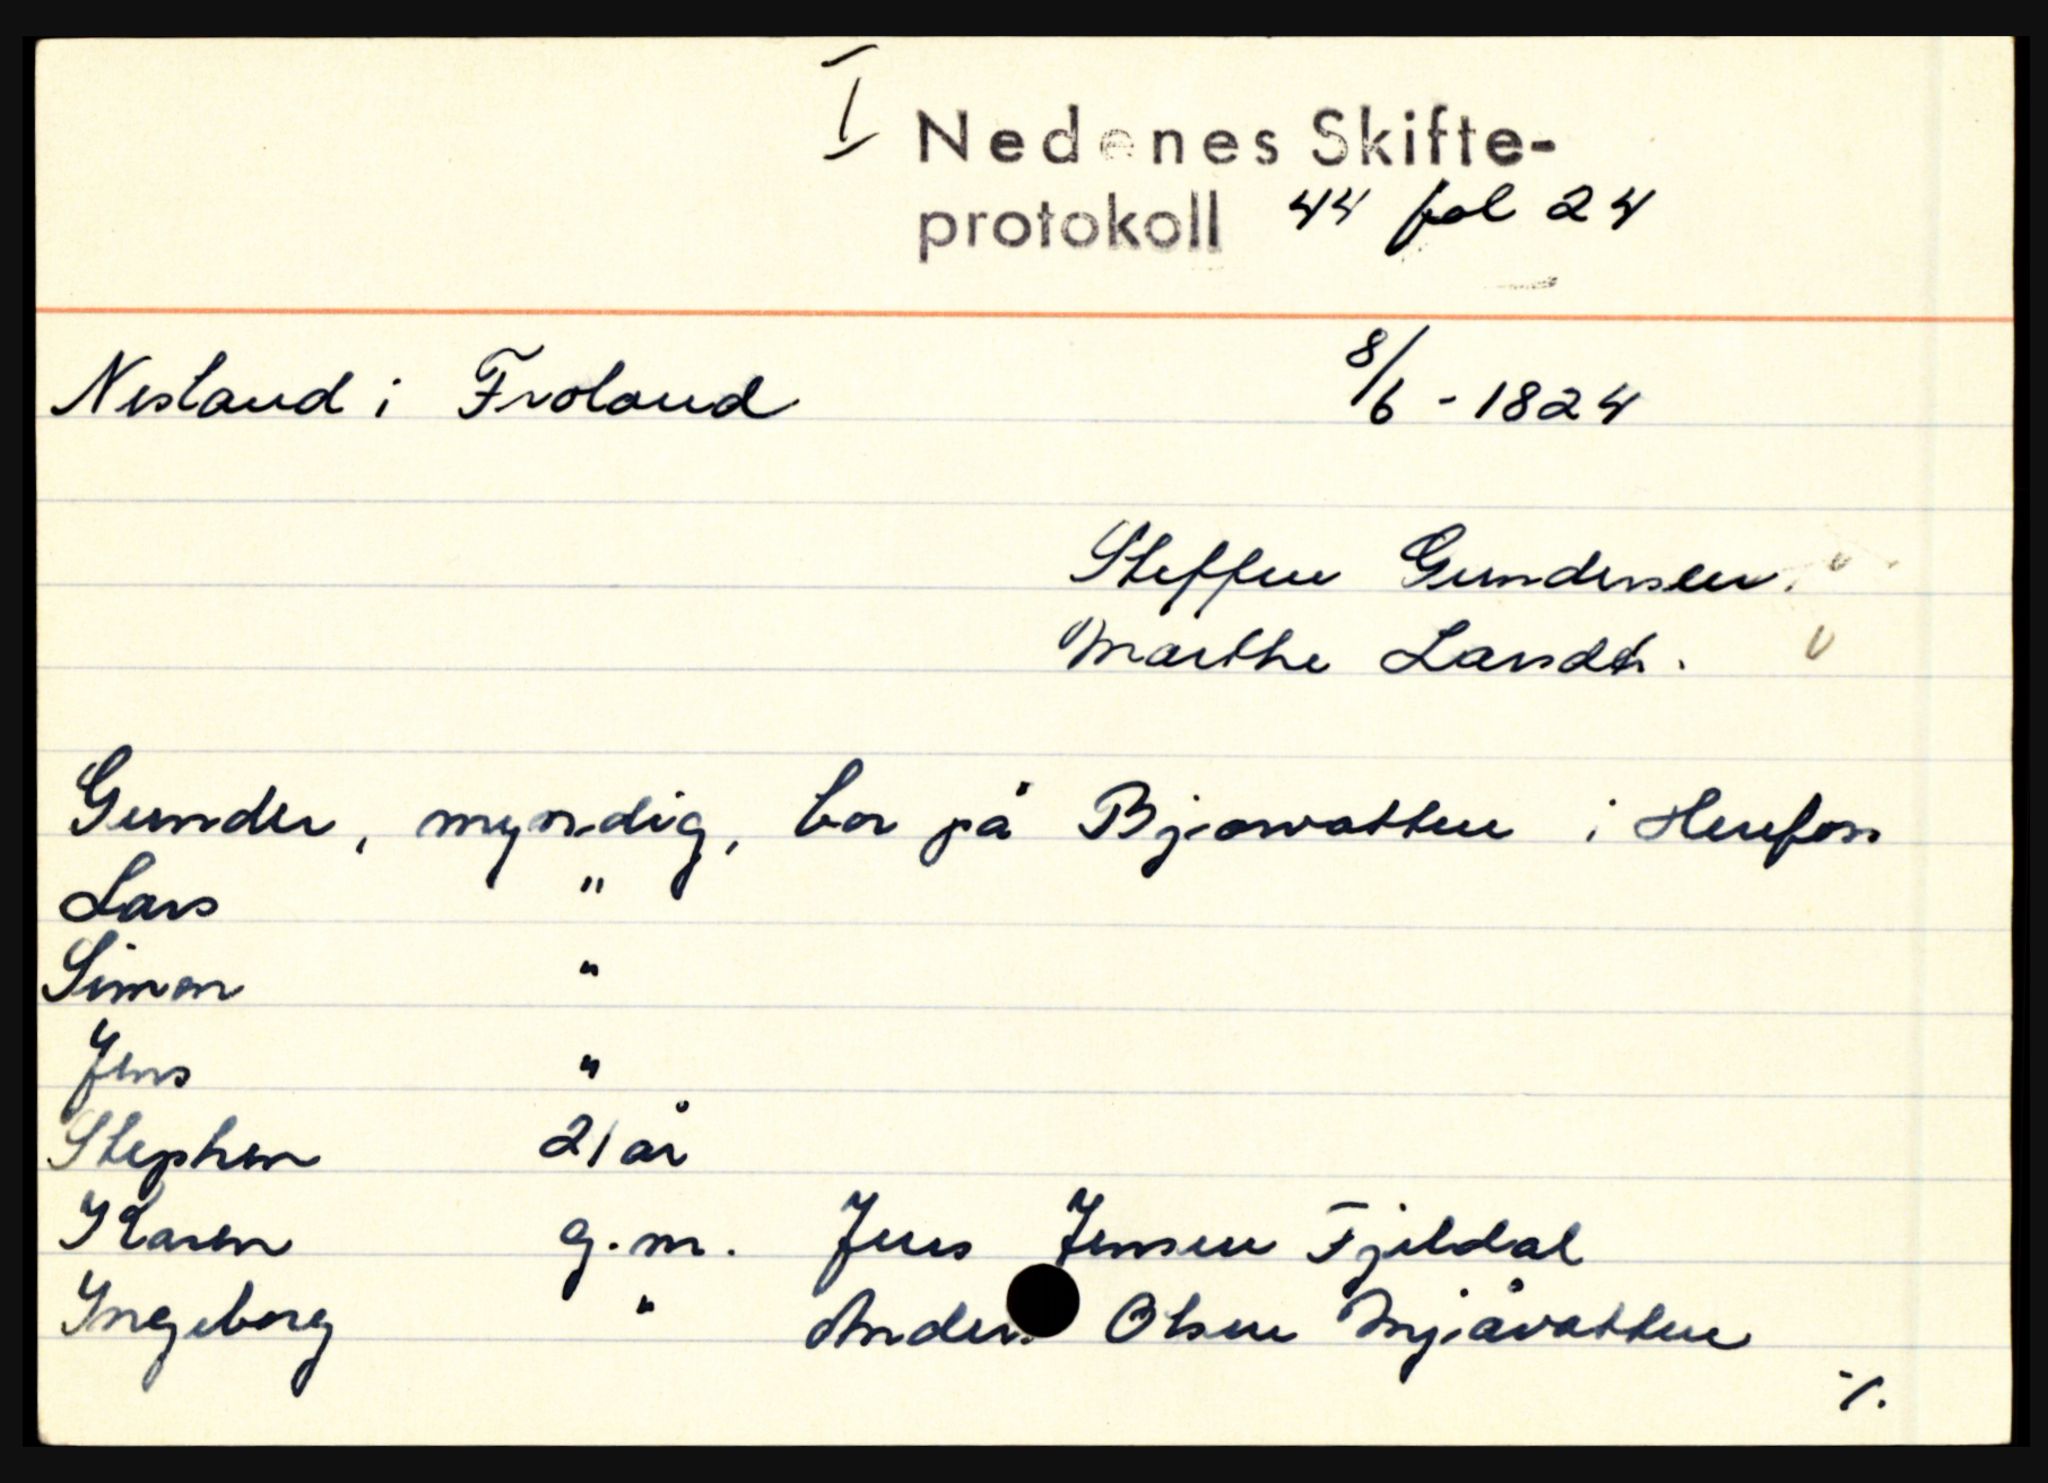 I Nedenes Skifte-
protokoll 44 fol 24
Nesland i Froland 8/6 - 1824
Steffen Gundersen.
Marthe Larsdt.
Gunder, myndig, bor på Bjorvatten i Herefoss
Lars "
Simon "
Jens "
Stephen 21 år
Karen g.m. Jens Jensen Fjeldal
Ingeborg " Anders Olsen Mjåvatten
./.